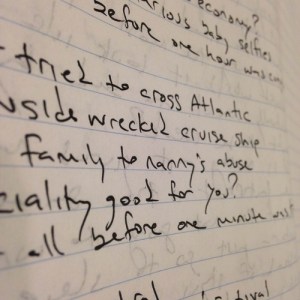 economy?
arious baby selfies
before one hour was
tried to cross Atlantic
nside wrecked cruise ship
family to nanny's abuse
ciality good for you?
all before one minute was